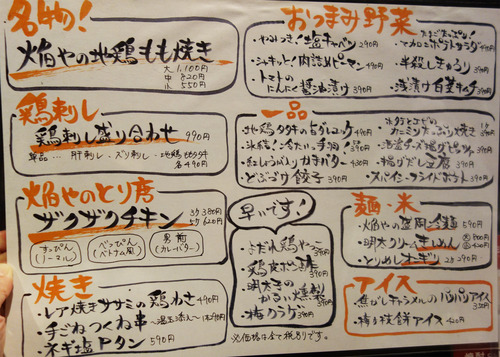 名物!
焔やの地鶏もも焼き
大 1,100円
中 820円
小 550円
鶏刺し
鶏刺し盛り合わせ 990円
単品… 肝刺し・ズリ刺し・地鶏
各490円
焔やのとり唐
ザクザクチキン 3ヶ380円
5ヶ620円
すっぴん
(ノーマル)
べっぴん
(ベトナム風)
男前
(カレーバター)
焼き
・レア焼きササミの鶏わさ 490円
・手ごねつくね串
・ネギ塩タン 590円
早いです!
・よだれ鶏 390円
・鶏皮ポン酢 390円
・明太子の
390円
・梅クラゲ 390円
※価格は全て税別です。
おつまみ野菜
・やみつき!塩キャベツ 290円
・シャキッ!肉詰めピーマン 490円
・トマトの
にんにく醤油漬け 390円
マカロニポテトサラダ
・半殺しきゅうり 390円
・浅漬け白菜キムチ 390円
一品
・地鶏タタキの旨ダレユッケ 490円
・氷結!冷たい手羽! 390円
・紅しょうがりかまバター 430円
・どぶづけ餃子 390円
・揚げだし豆腐 390円
・スパイシーフライドポテト 390円
麺・米
・焔やの盛岡冷麺 590円
・明太クリームきしめん
・とりめしオニギリ 2ヶ290円
アイス
・焦がしキャラメルのパリパリアイス
390円
・棒々餅アイス 420円